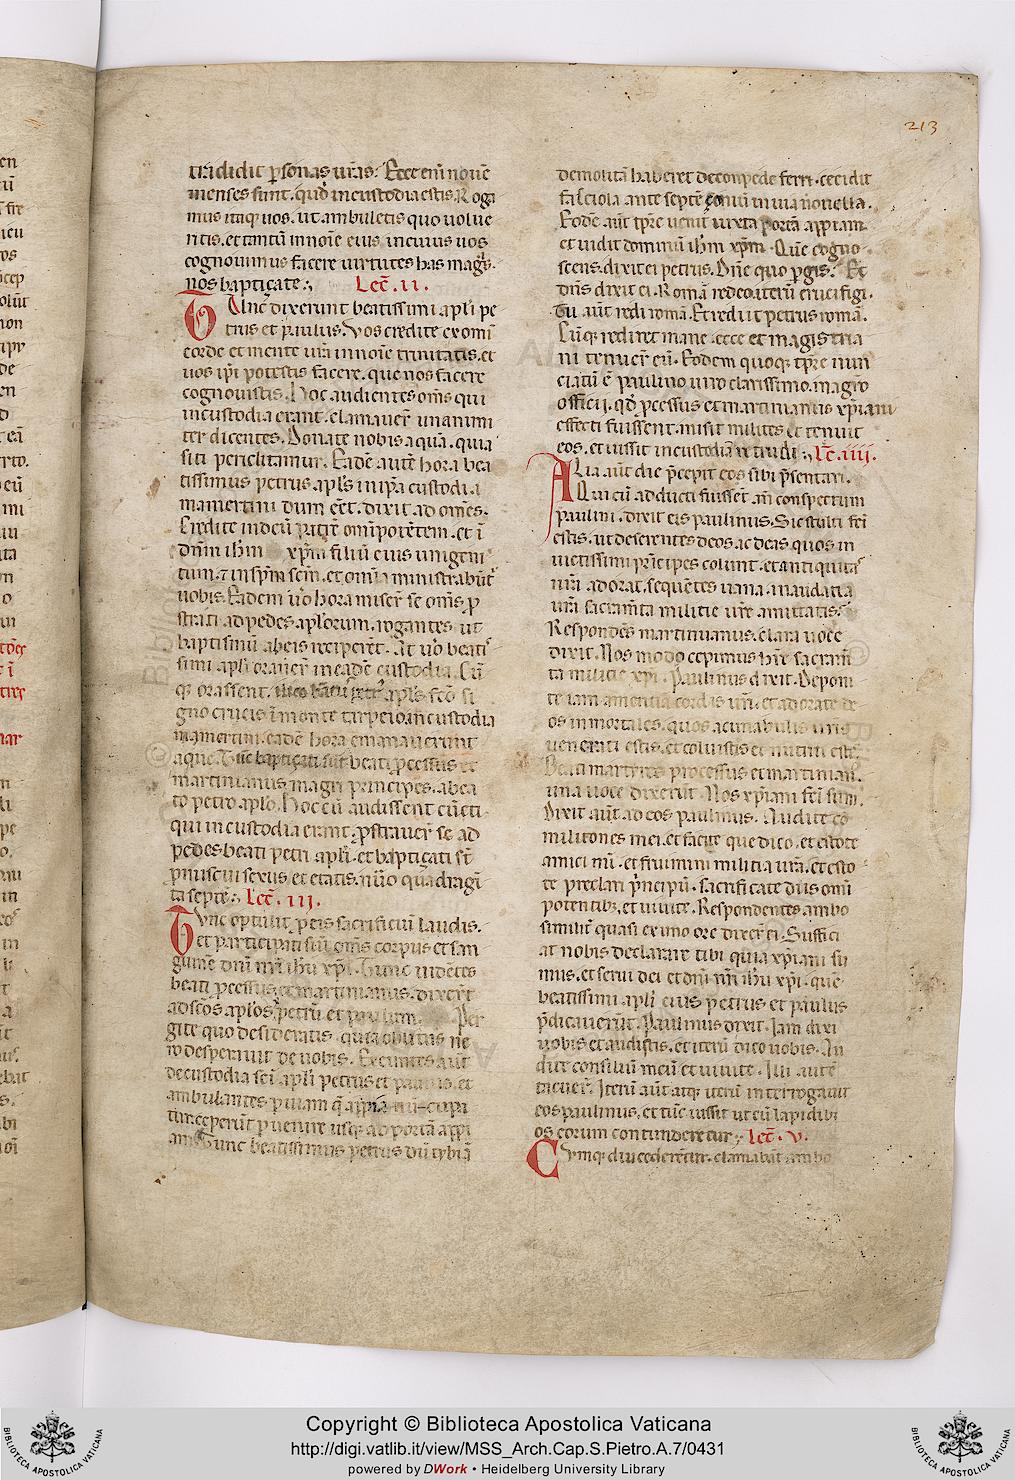 213
tradidit personas vr̄as. Ecce eni nouē
menses sunt. quod in custodia estis. Roga
mus itaq; uos. ut ambuletis quo uolue
ritis. et tantū in noīe eius in cuius uos
cognouimus facere uirtutes has magās.
nos baptiçate. Lec̄. II.
TUnc dixerunt beatissimi apl̄i pe
trus et paulus. Vos credite ex omī
corde et mente ur̄a in noīe trinitatis. et
uos ip̄i potestis facere. que nos facere
cognouistis. Hoc audientes om̄s qui
in custodia erant. clamauer̄ unanimi
ter dicentes. Donate nobis aquā. quia
siti periclitamur. Eadē autē hora bea
tissimus petrus apl̄s in ip̄a custodia
mamertini dum eēt. dixit ad om̄es.
Credite in deū patrē omīpotētem. et ī
dn̄m ih̄m xp̄m filiū eius unigeni
tum. ⁊ in sp̄m sc̄m. et omīa ministrabūt̄
uobis. Eadem uo hora miser̄ se om̄s p
strati ad pedes apl̄orum. rogantes ut
baptismū ab eis reciperēt. At uo beatis
simi apl̄i orauer̄ in eadē custodia. Cū
q; orassent. apl̄s sc̄o si
gno crucis ī monte tarpeio in custodia
mamertini. eadē hora emanauerunt
aque. Tūc baptiçati sūt beati pcessus et
martinianus magri principes. a bea
to petro aplo. Hoc cū audissent cūcti
qui in custodia erant. pstrauer̄ se ad
pedes beati petri apl̄i. et baptiçati st̄
pmiscui sexus et etatis. nūo quadragī
ta septē. Lec̄. III.
TVnc optulit p eis sacrificiū laudis.
et participati sūt om̄s corpus et san
guinē dn̄i nr̄i ih̄u xp̄i. Tunc uidētes
beati pcessus et martinianus. dixer̄t
ad sc̄os apl̄os petrū et paulum. Per
gite quo desideratis. quia oblitus ne
ro desperauit de uobis. Exeuntes aūt
de custodia sc̄i apl̄i petrus et paulus. et
ambulantes p uiam q̄ appia
tur. ceperūt puenire usq; ad portā appi
am. Tunc beatissimus petrus dū tybiā
demolitā haberet de conpede ferri. cecidit
fasciola ante septē in uia nouella.
Eodē aūt tpr̄e uenit iuxta portā appiam
et uidit dominū ih̄m xp̄m. Quē cogno
scens. dixit ei petrus. Dn̄e quo pgis. Et
dn̄s dixit ei. Romā redeo. iterū crucifigi.
Tu aūt redi romā. Et rediit petrus romā.
Cūq; rediret mane. ecce et magistria
ni tenuer̄ eū. Eodem quoq; tpr̄e nun
ciatū ē paulino uiro clarissimo. magro
officij. qd pcessus et martinianus xp̄iani
effecti fuissent. misit milites et tenuit
eos. et iussit in custodia retrudi. Lec̄. IIII.
ALia aūt die pcepit eos sibi psentari.
Qui cū adducti fuisset̄ an̄ conspectum
paulini. dixit eis paulinus. Sic stulti fc̄i
estis. ut deserentes deos. ac deas. quos in
uictissimi principes colunt. et antiquitas
nr̄a adorat. sequētes uana. inaudatia
ur̄a sacram̄ta militie ur̄e amittatis.
Respondēs martinianus. clara uoce
dixit. Nos modo cepimus hr̄e sacram̄
ta militie xp̄i. Paulinus dixit. Deponi
te iam amentiā cordis ur̄i. et adorate de
os inmortales. quos a cunabulis ur̄is
uenerati estis. et coluistis et nutriti estis.
Beati martyres processus et martinian.
una uoce dixerūt. Nos xp̄iani fc̄i sum.
Dixit aūt ad eos paulinus. Audite co
militones mei. et facite que dico. et estote
amici mī. et fruimini militia ur̄a. et esto
te preclari principū. sacrificate diis omī
potentib;. et uiuite. Respondentes ambo
similit̄ quasi ex uno ore dixer̄t ei. Suffici
at nobis declarare tibi quia xp̄iani su
mus. et serui dei et dn̄i nr̄i ih̄u xp̄i. quē
beatissimi apl̄i eius petrus et paulus
pdicauerūt. Paulinus dixit. Iam dixi
uobis et audistis. et iterū dico uobis. Au
dite consiliū meū et uiuite. Illi autē
tacuer̄. Iterū aūt atq; iterū interrogauit
eos paulinus. et tūc iussit ut cū lapidibs
os eorum contunderetur. Lec̄. V.
CVmq; diu cederent̄ur. clamabāt ambo
Copyright © Biblioteca Apostolica Vaticana
http://digi.vatlib.it/view/MSS_Arch.Cap.S.Pietro.A.7/0431
powered by DWork • Heidelberg University Library
BIBLIOTECA APOSTOLICA VATICANA
BIBLIOTECA APOSTOLICA VATICANA